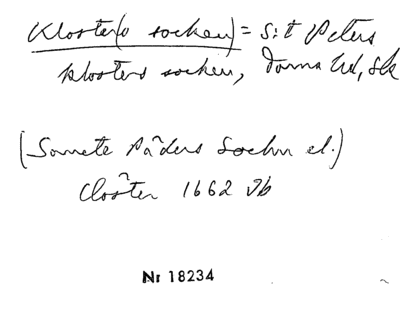 Kloster(s socken) = S:t Peters
klosters socken, Torna hd, Sk
(Sancte Päders Sochn el.)
Closter 1662 Jb
Nr 18234